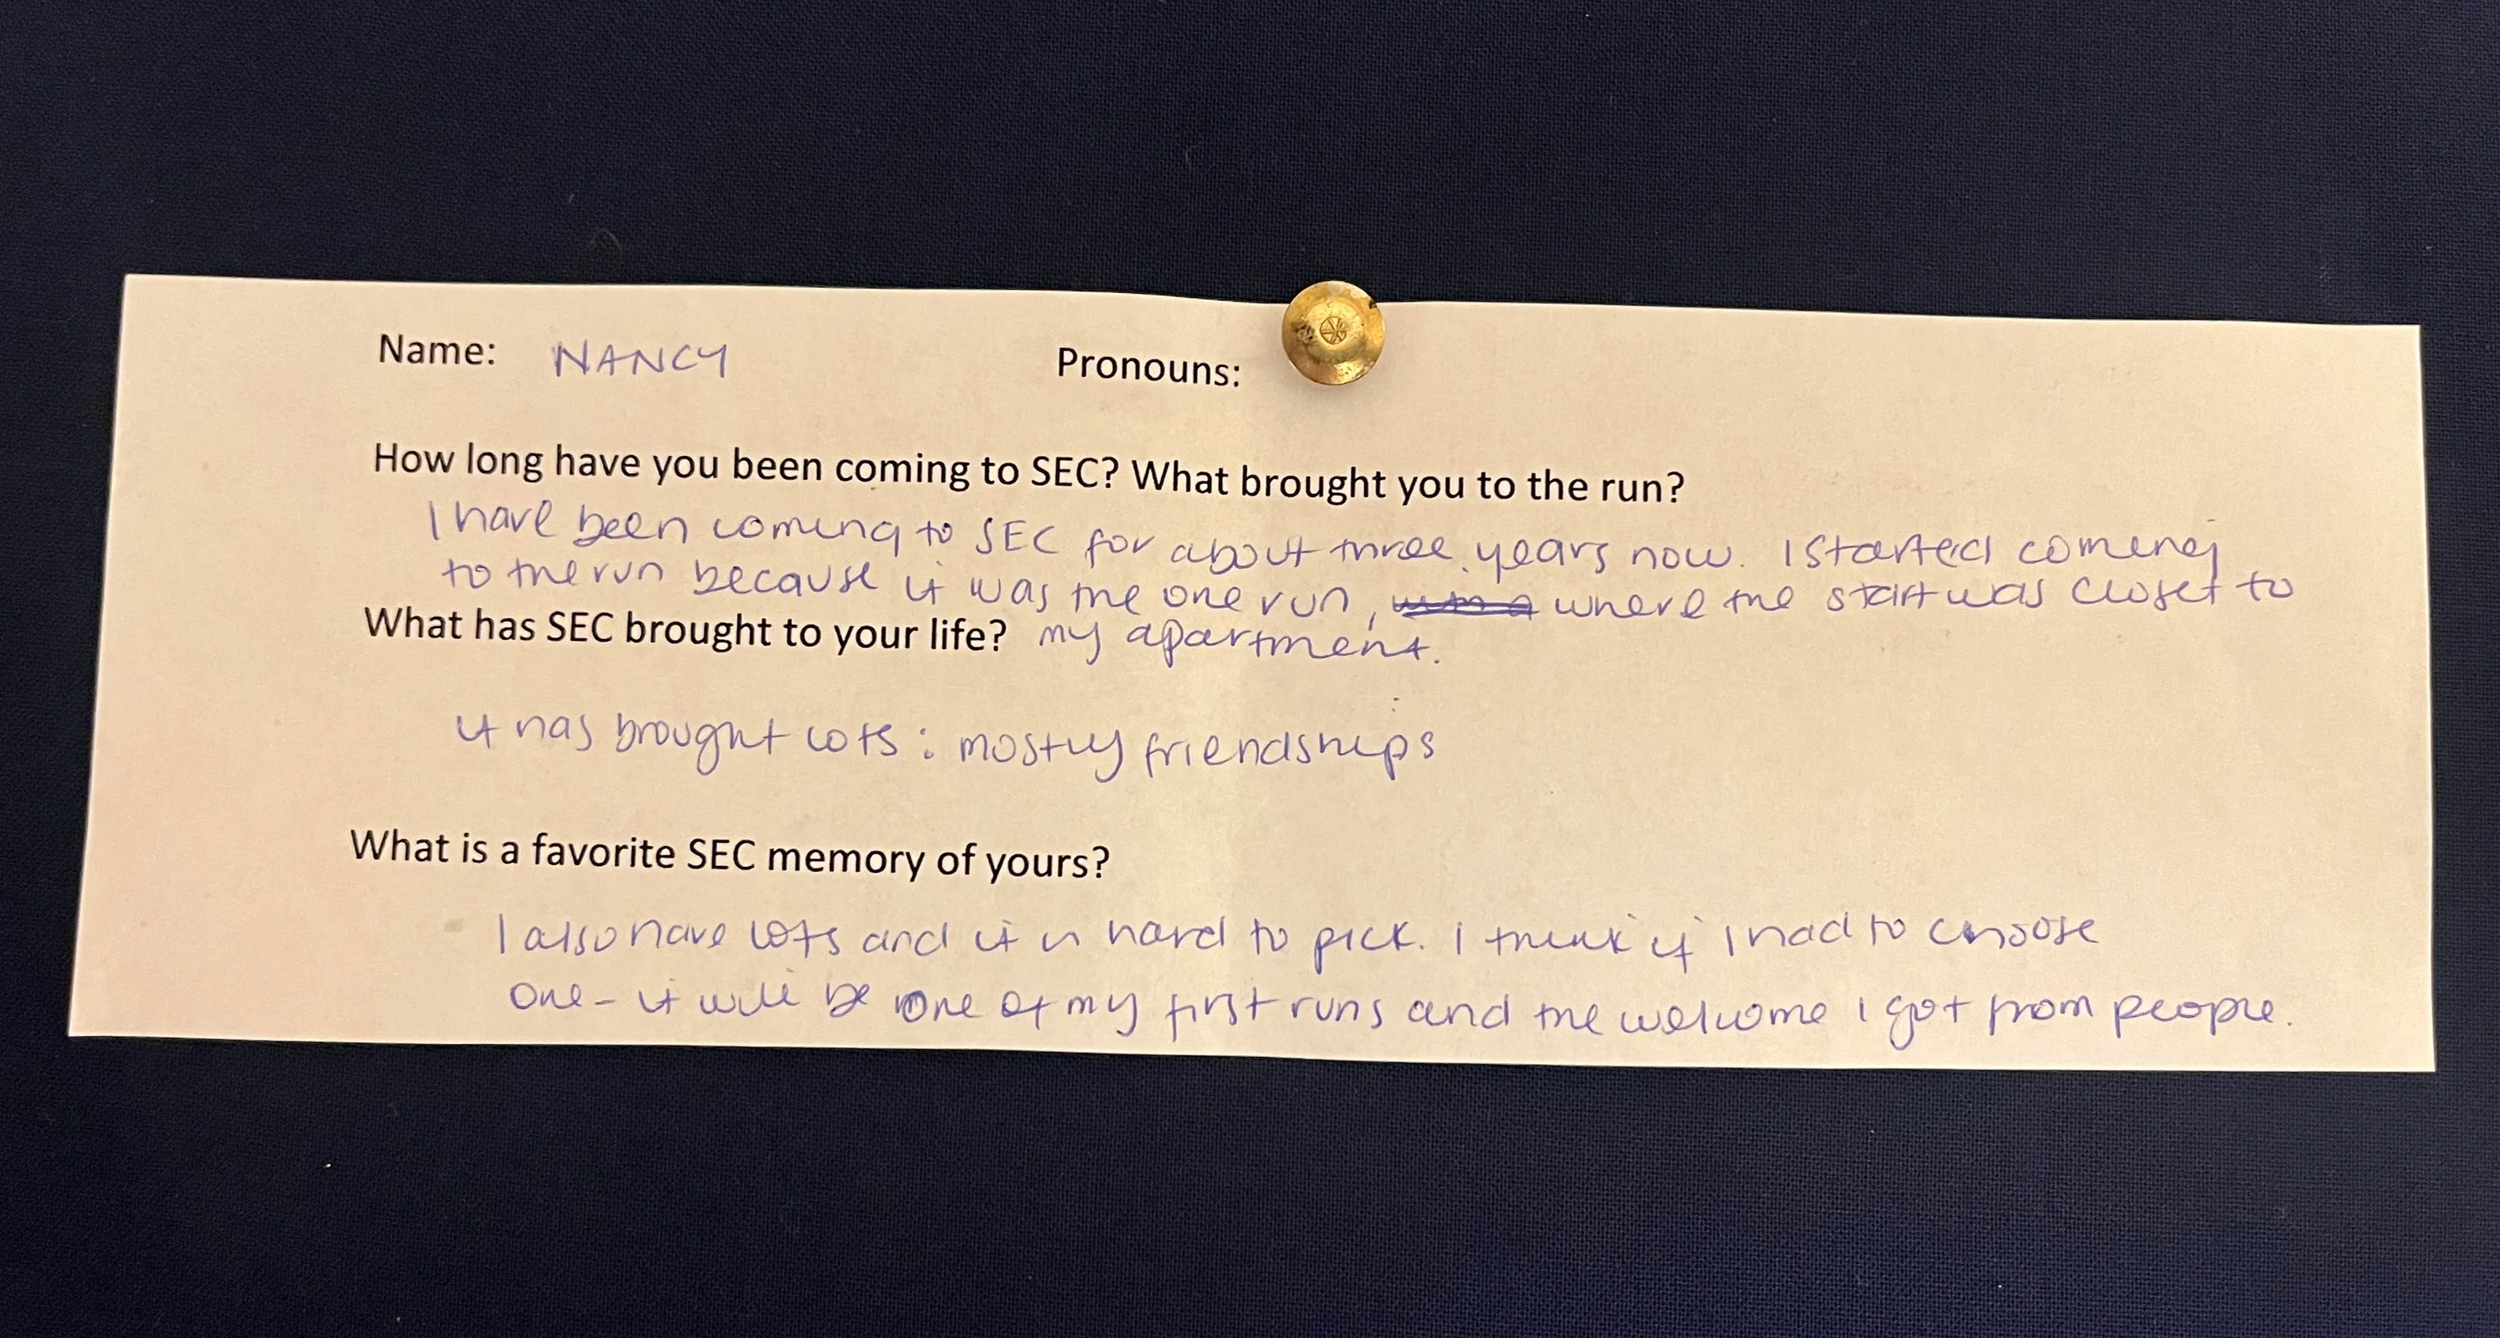 Name: NANCY Pronouns:
How long have you been coming to SEC? What brought you to the run?
I have been coming to SEC for about three years now. I started coming
to the run because it was the one run, where the start was closet to
What has SEC brought to your life? my apartment.
it has brought lots: mostly friendships
What is a favorite SEC memory of yours?
I also have lots and it is hard to pick. I think if I had to choose
one - it will be one of my first runs and the welcome I got from people.